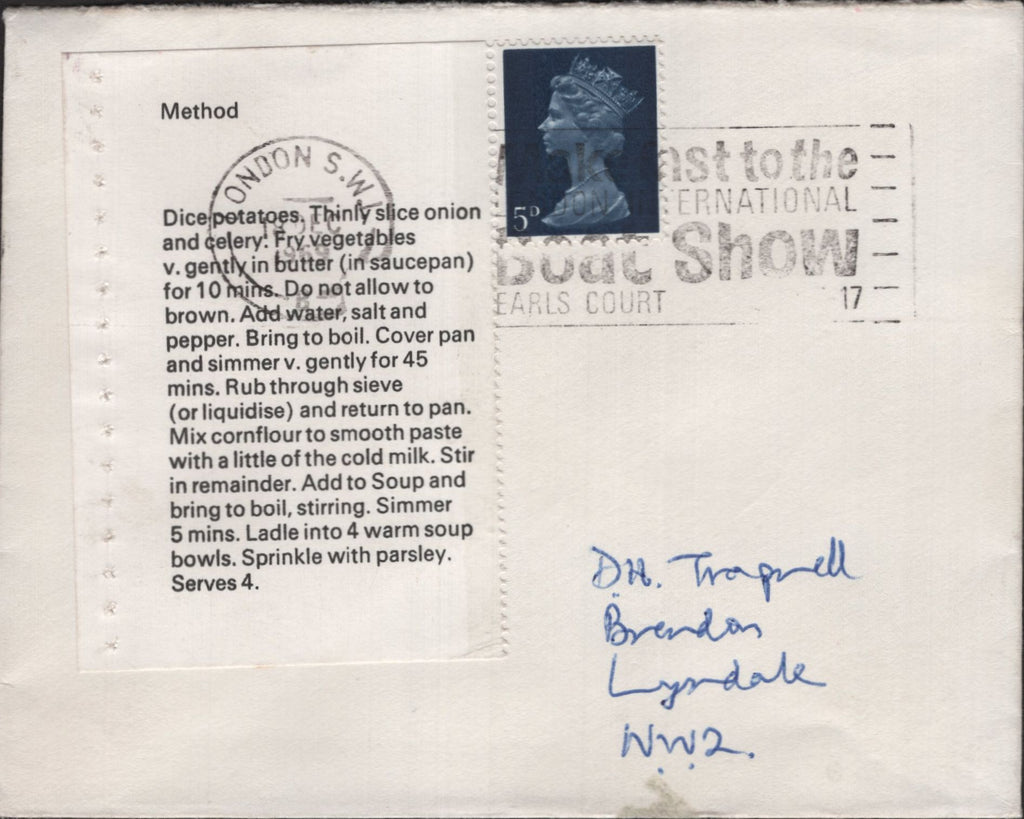 Method
LONDON S.W.1
DEC
1969
Dice potatoes. Thinly slice onion
and celery. Fry vegetables
v. gently in butter (in saucepan)
for 10 mins. Do not allow to
brown. Add water, salt and
pepper. Bring to boil. Cover pan
and simmer v. gently for 45
mins. Rub through sieve
(or liquidise) and return to pan.
Mix cornflour to smooth paste
with a little of the cold milk. Stir
in remainder. Add to Soup and
bring to boil, stirring. Simmer
5 mins. Ladle into 4 warm soup
bowls. Sprinkle with parsley.
Serves 4.
5D
to the
INTERNATIONAL
Boat Show
EARLS COURT 17
D.H. Trapnell
Brendon
Lyndale
N.W.2.